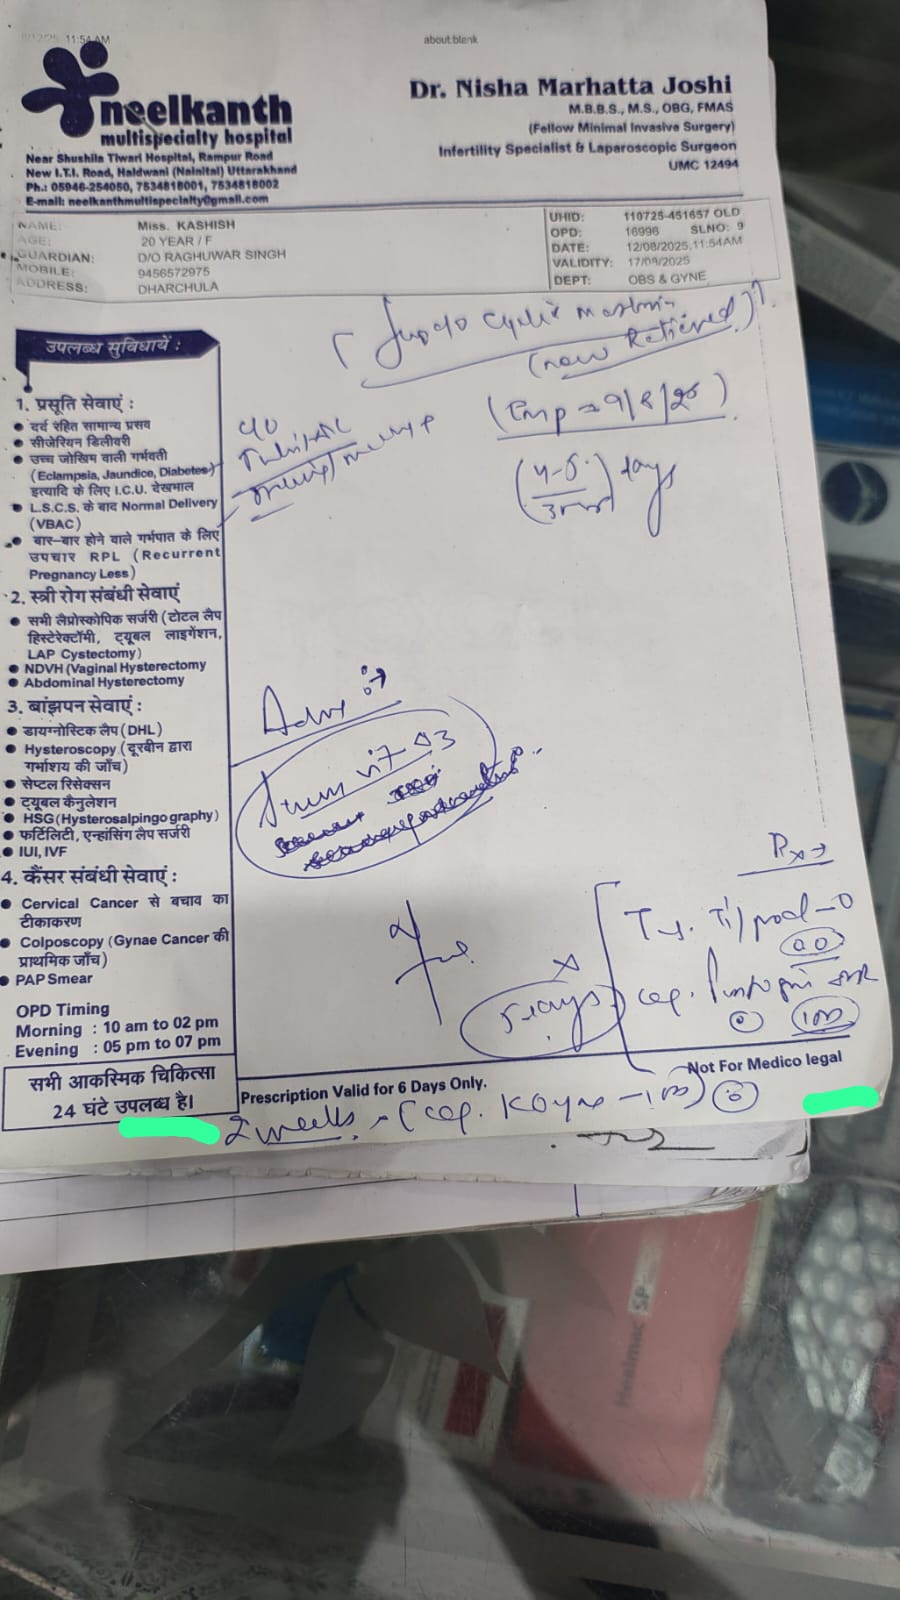 11:54 AM
about:blank
neelkanth
multispecialty hospital
Near Shushila Tiwari Hospital, Rampur Road
New I.T.I. Road, Haldwani (Nainital) Uttarakhand
Ph.: 05946-254050, 7534818001, 7534818002
E-mail: neelkanthmultispecialty@gmail.com
Dr. Nisha Marhatta Joshi
M.B.B.S., M.S., OBG, FMAS
(Fellow Minimal Invasive Surgery)
Infertility Specialist & Laparoscopic Surgeon
UMC 12494
NAME: Miss. KASHISH
AGE: 20 YEAR / F
GUARDIAN: D/O RAGHUWAR SINGH
MOBILE: 9456572975
ADDRESS: DHARCHULA
UHID: 110725-451657 OLD
OPD: 16996 SLNO: 9
DATE: 12/08/2025,11:54AM
VALIDITY: 17/08/2025
DEPT: OBS & GYNE
cyclic
(now Relieved)
(Lmp → 9/8/25)
(4-5 days
उपलब्ध सुविधायें :
1. प्रसूति सेवाएं :
दर्द रहित सामान्य प्रसव
सीजेरियन डिलीवरी
उच्च जोखिम वाली गर्भवती
(Eclampsia, Jaundice, Diabetes)
इत्यादि के लिए I.C.U. देखभाल
L.S.C.S. के बाद Normal Delivery
(VBAC)
बार-बार होने वाले गर्भपात के लिए
उपचार RPL (Recurrent
Pregnancy Less)
2. स्त्री रोग संबंधी सेवाएं
सभी लैप्रोस्कोपिक सर्जरी (टोटल लैप
हिस्टेरेक्टॉमी, ट्यूबल लाइगेंशन,
LAP Cystectomy)
NDVH (Vaginal Hysterectomy
Abdominal Hysterectomy
3. बांझपन सेवाएं :
डायग्नोस्टिक लैप (DHL)
Hysteroscopy (दूरबीन द्वारा
गर्भाशय की जाँच)
सेप्टल रिसेक्सन
ट्यूबल कैनुलेशन
HSG (Hysterosalpingography)
फर्टिलिटी, एन्हांसिंग लैप सर्जरी
IUI, IVF
4. कैंसर संबंधी सेवाएं :
Cervical Cancer से बचाव का
टीकाकरण
Colposcopy (Gynae Cancer की
प्राथमिक जाँच)
PAP Smear
OPD Timing
Morning : 10 am to 02 pm
Evening : 05 pm to 07 pm
सभी आकस्मिक चिकित्सा
24 घंटे उपलब्ध है।
Adv :→
Serum vit D3
Rx→
5 days
Prescription Valid for 6 Days Only.
Not For Medico legal
2 weeks